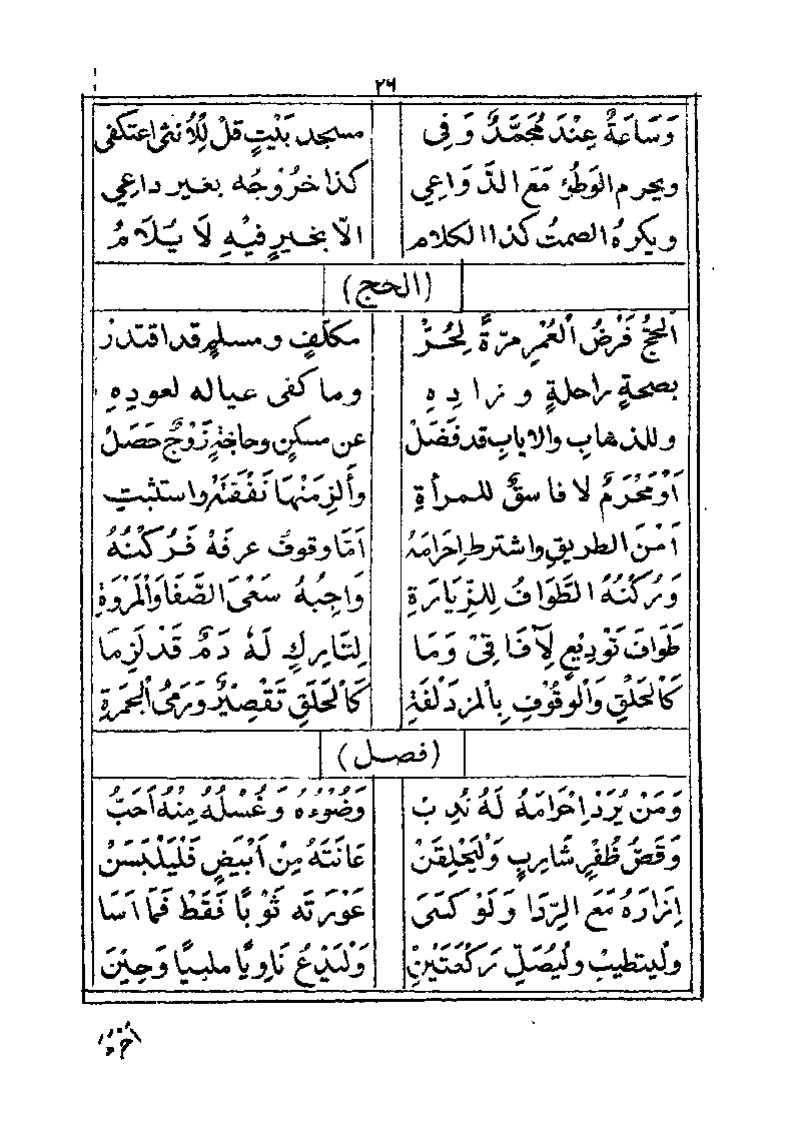 ٢٦
وَسَاعَةٌ عِنْدَ مُحَمَّدٍ وَفِى مسجد بَيْتٍ قلْ لِلْأُنثى اعتكفى
ويحرم الوَطْؤُ مَعَ الدَّوَاعِي كذا خرُوْجُه بغير داعِي
ويكرهُ الصمتُ كذا الكلام الّا بخيرٍ فِيْهِ لَا يُلَامُ
(الحج)
اَلحجُّ فَرْضُ العُمْرِ مرّةً لِحُرّْ مكلّفٍ ومسلمٍ قد اقتدرْ
بصحةٍ راحلةٍ وزادِهِ وما كفى عياله لعودِهِ
وللذهابِ والايابِ قد فَضَلْ عن مسكنٍ وحاجةٍ زَوْجٌ حَصَلْ
اَوْ مَحْرَمٌ لا فاسقٌ للمرأةِ وأَلزِمَنْهَا نَفْقَتَهْ واستثبتِ
اَمْنَ الطريقِ واشترط اِحْرَامَهُ اَمّا وقوفُ عرفَهْ فَرُكْنُهُ
وَرُكْنُهُ الطَّوَافُ لِلزِّيَارَةِ وَاجِبُهُ سَعْىُ الصَّفَا وَالْمَرْوَةِ
طَوَافَ تَوْدِيْعٍ لِآفَاقِىْ وَمَا لِتَارِكٍ لَهُ دَمٌ قَدْ لَزِمَا
كَالْحَلْقِ وَالْوقُوْفِ بِالْمزدَلفَةِ كَالْحَلَقِ تَقْصِيْرٌ وَرَمْىُ الْجَمْرَةِ
(فصل)
وَمَنْ يُرَدْ اِحْرَامَهُ لَهُ نُدِبْ وَضُوْءُهُ وَغُسْلُهُ مِنْهُ اَحَبّْ
وَقَصُّ ظُفْرٍ شَارِبٍ وَلْيَحْلِقَنْ عَانَتَهُ مِنْ اَبْيَضٍ فَلْيَلْبَسَنْ
اِزَارَهُ مَعَ الرِّدَا وَلَوْ كَسَى عَوْرَتَه ثَوْبًا فَقَطْ فَمَا اَسَا
وليتطيبْ وليُصَلِّ رَكْعَتَيْنْ وَلْيَدْعُ نَاوِيًا ملبيًا وَحِيْنَ